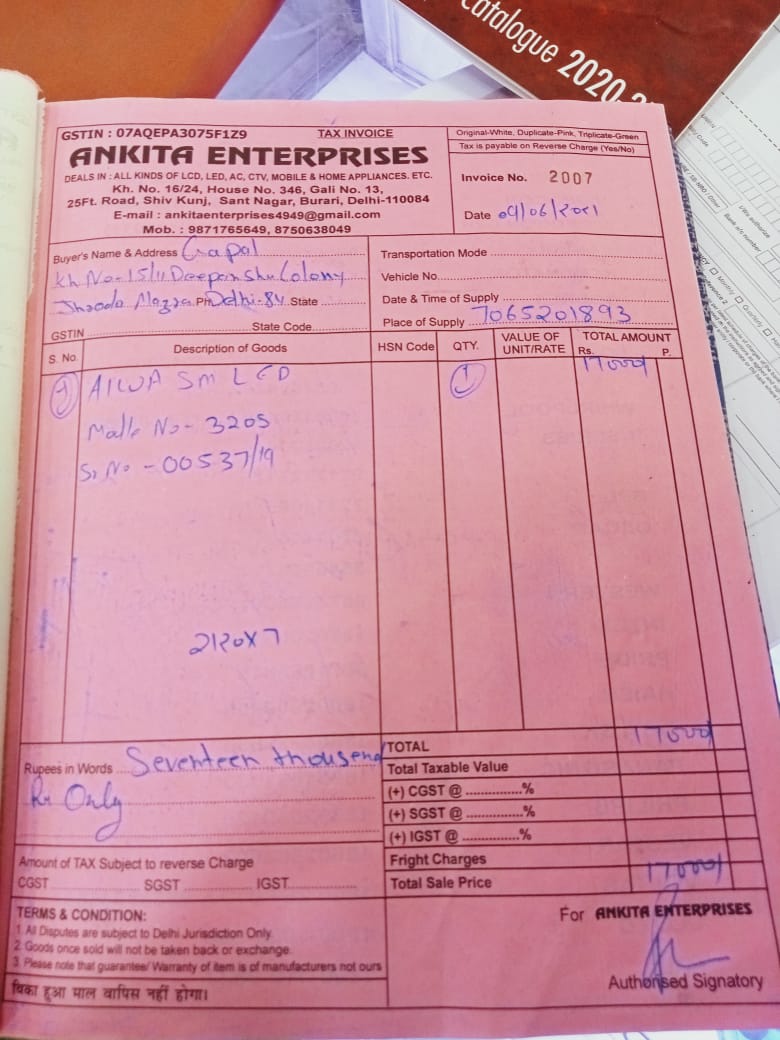 Catalogue 2020-2
GSTIN : 07AQEPA3075F1Z9
TAX INVOICE
Original-White, Duplicate-Pink, Triplicate-Green
Tax is payable on Reverse Charge (Yes/No)
ANKITA ENTERPRISES
DEALS IN : ALL KINDS OF LCD, LED, AC, CTV, MOBILE & HOME APPLIANCES. ETC.
Kh. No. 16/24, House No. 346, Gali No. 13,
25Ft. Road, Shiv Kunj, Sant Nagar, Burari, Delhi-110084
E-mail : ankitaenterprises4949@gmail.com
Mob. : 9871765649, 8750638049
Invoice No. 2007
Date 09/06/2021
Buyer's Name & Address Gapal
Kh No-15/11 Deepanshu Colony
Mazra Ph Delhi-84 State
GSTIN State Code
Transportation Mode
Vehicle No.
Date & Time of Supply
Place of Supply 7065201893
S. No. Description of Goods HSN Code QTY. VALUE OF UNIT/RATE TOTAL AMOUNT Rs. P.
1 AIWA SM LED 1 17000/
Malle No- 3205
Sr No - 00537/19
2120X7
Rupees in Words Seventeen thousend
Rs Only
TOTAL 17000/
Total Taxable Value
(+) CGST @ ..............%
(+) SGST @ ..............%
(+) IGST @ ..............%
Fright Charges
Total Sale Price 17000/
Amount of TAX Subject to reverse Charge
CGST SGST IGST
TERMS & CONDITION:
1. All Disputes are subject to Delhi Jurisdiction Only.
2. Goods once sold will not be taken back or exchange.
3. Please note that guarantee/ Warranty of item is of manufacturers not ours
बिका हुआ माल वापिस नहीं होगा।
For ANKITA ENTERPRISES
Authorised Signatory